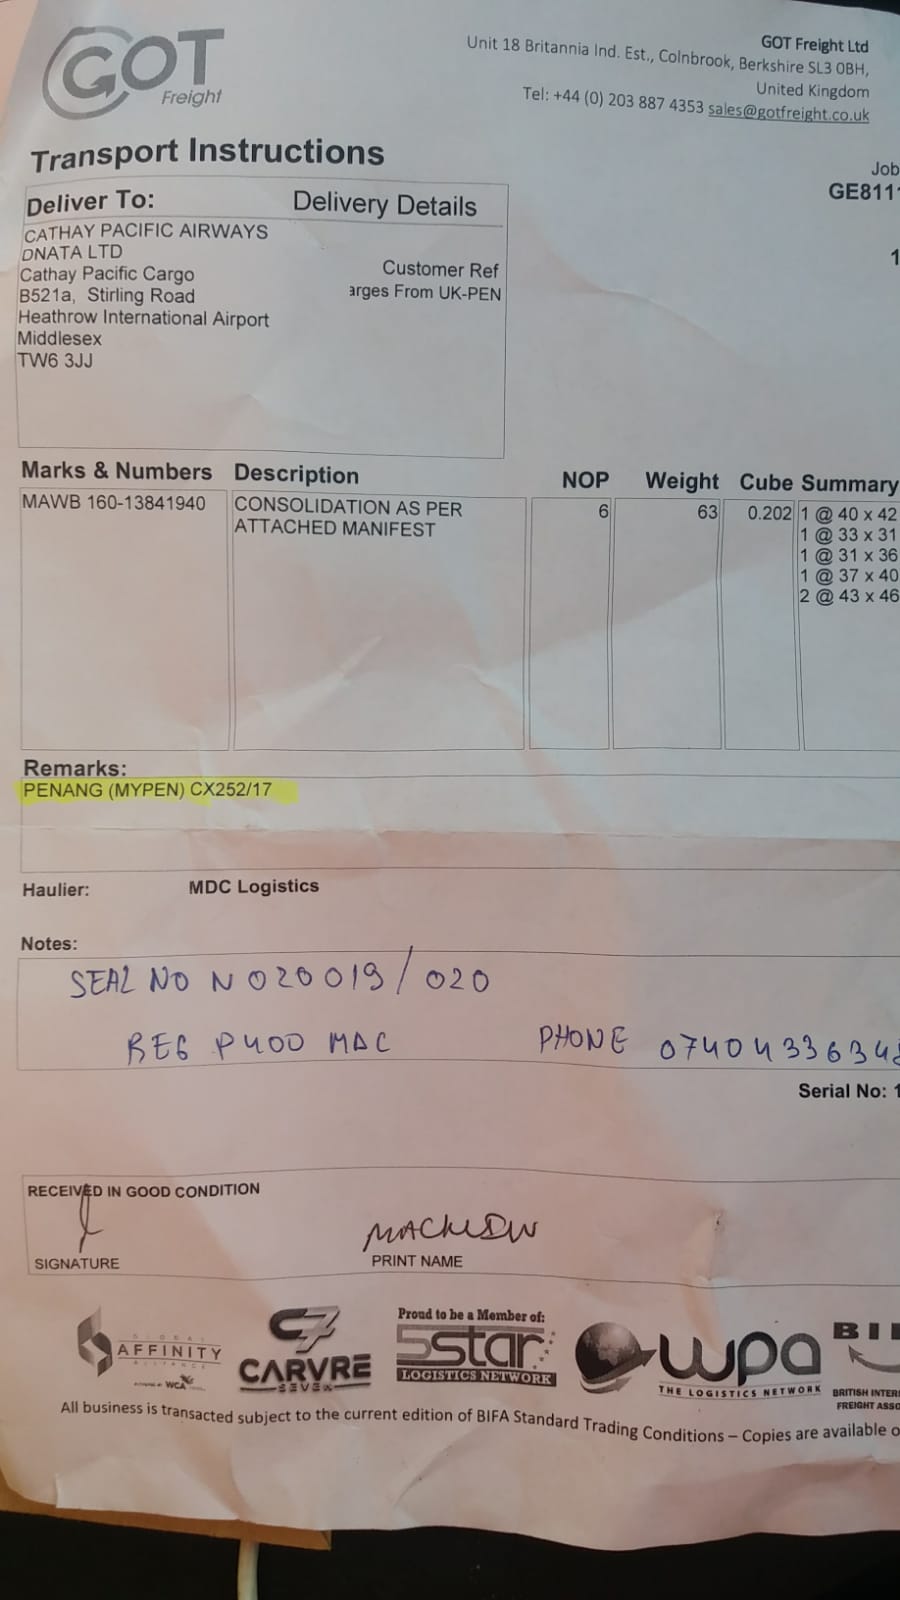 GOT
Freight
GOT Freight Ltd
Unit 18 Britannia Ind. Est., Colnbrook, Berkshire SL3 0BH,
United Kingdom
Tel: +44 (0) 203 887 4353 sales@gotfreight.co.uk
Transport Instructions
Job
GE811
1
Deliver To:
Delivery Details
CATHAY PACIFIC AIRWAYS
DNATA LTD
Cathay Pacific Cargo
B521a, Stirling Road
Heathrow International Airport
Middlesex
TW6 3JJ
Customer Ref
arges From UK-PEN
Marks & Numbers Description NOP Weight Cube Summary
MAWB 160-13841940 CONSOLIDATION AS PER 6 63 0.202 1 @ 40 x 42
ATTACHED MANIFEST 1 @ 33 x 31
1 @ 31 x 36
1 @ 37 x 40
2 @ 43 x 46
Remarks:
PENANG (MYPEN) CX252/17
Haulier: MDC Logistics
Notes:
SEAL NO N 020019/020
REG P400 MAC PHONE 0740433634
Serial No: 1
RECEIVED IN GOOD CONDITION
SIGNATURE
PRINT NAME
GLOBAL
AFFINITY
ALLIANCE
WCA
C7
CARVRE
SEVEN
Proud to be a Member of:
5star
LOGISTICS NETWORK
wpa
THE LOGISTICS NETWORK
BI
BRITISH INTER
FREIGHT ASSO
All business is transacted subject to the current edition of BIFA Standard Trading Conditions – Copies are available o